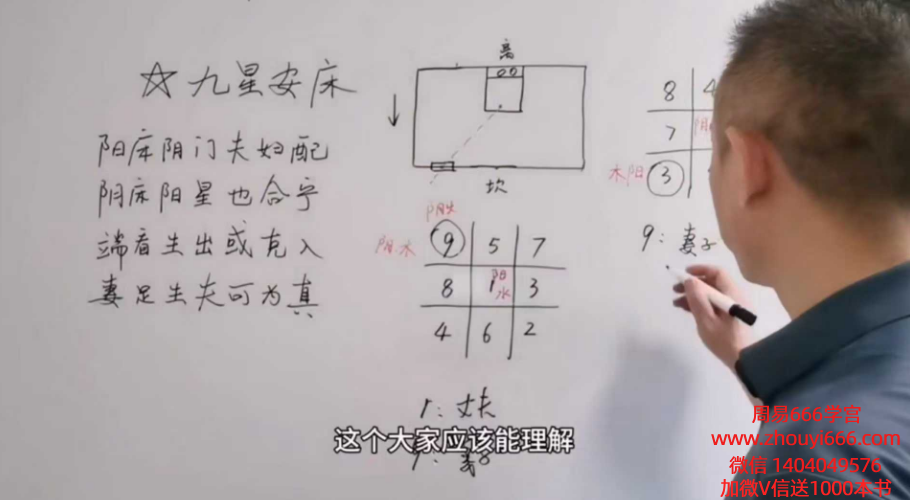 ☆九星安床
阳床阴门夫妇配
阴床阳星也合乎
端看生出或克入
妻星生夫可为真
离
坎
阳木
9 5 7
8 1 阳水 3
4 6 2
1：丈夫
9：妻子
8 4
7
木阳 3
9：妻子
这个大家应该能理解
周易666学宫
www.zhouyi666.com
微信 1404049576
加微V信送1000本书